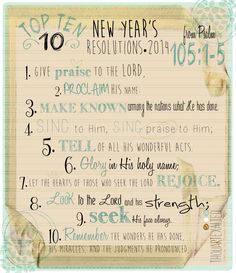 TOP TEN
10
NEW YEAR'S
RESOLUTIONS. 2014
from Psalm
105:1-5
1. GIVE praise TO THE LORD,
2. PROCLAIM HIS NAME;
3. MAKE KNOWN among the nations what He has done.
4. SING to Him, SING praise to Him;
5. TELL OF ALL HIS WONDERFUL ACTS.
6. Glory in His holy name;
7. LET THE HEARTS OF THOSE WHO SEEK THE LORD REJOICE.
8. Look to the Lord and his strength;
9. seek His face always.
10. Remember THE WONDERS HE HAS DONE,
HIS MIRACLES, AND THE JUDGMENTS HE PRONOUNCED.